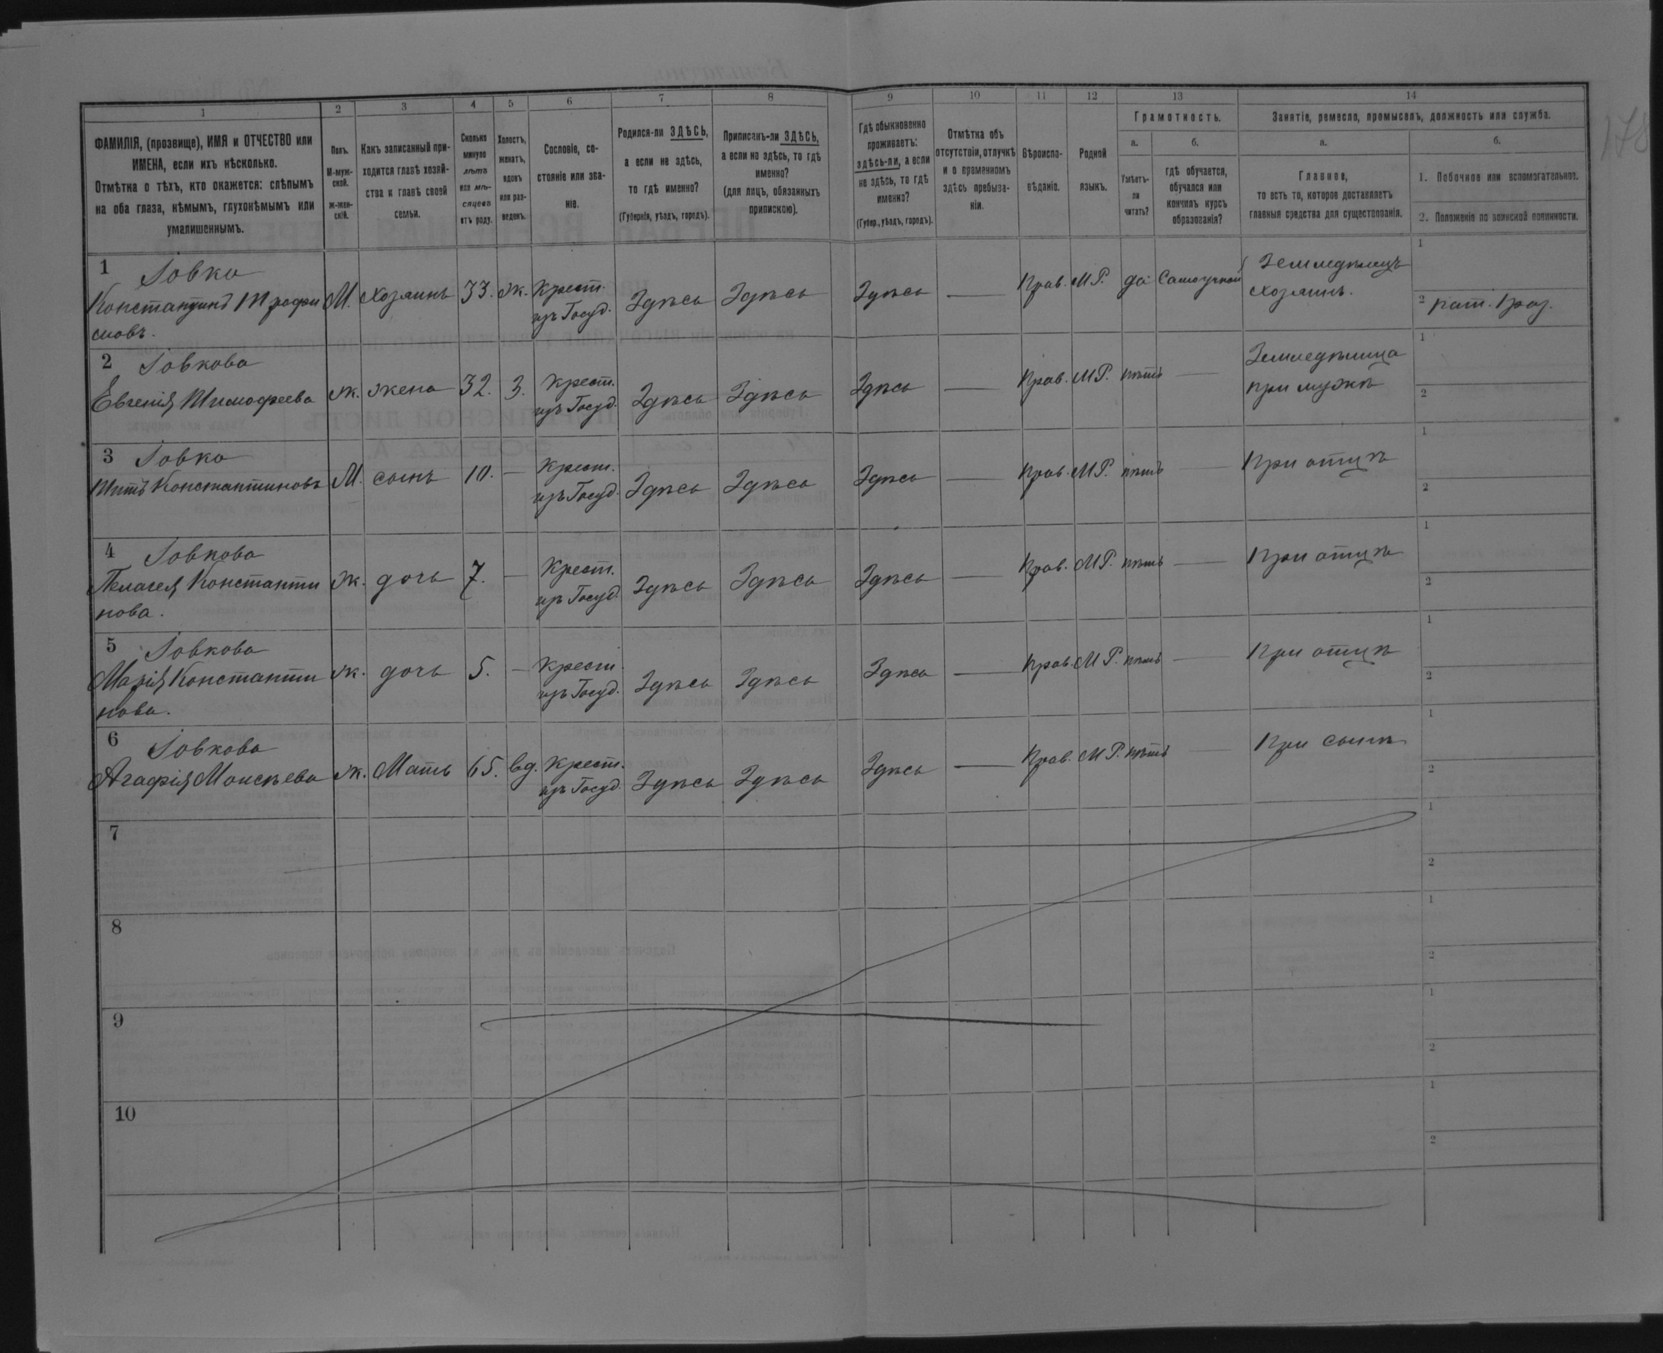 1 2 3 4 5 6 7 8 9 10 11 12 13 14
ФАМИЛІЯ, (прозвище), ИМЯ и ОТЧЕСТВО или
ИМЕНА, если ихъ нѣсколько.
Отмѣтка о тѣхъ, кто окажется: слѣпымъ
на оба глаза, нѣмымъ, глухонѣмымъ или
умалишеннымъ.
Полъ.
М-муж-
ской.
ж-жен-
скій.
Какъ записанный при-
ходится главѣ хозяй-
ства и главѣ своей
семьи.
Сколько
минуло
лѣтъ
или мѣ-
сяцевъ
отъ роду.
Холостъ,
женатъ,
вдовъ
или раз-
веденъ.
Сословіе, со-
стояніе или зва-
ніе.
Родился-ли ЗДѢСЬ,
а если не здѣсь,
то гдѣ именно?
(Губернія, уѣздъ, городъ).
Приписанъ-ли ЗДѢСЬ,
а если не здѣсь, то гдѣ
именно?
(для лицъ, обязанныхъ
припискою).
Гдѣ обыкновенно
проживаетъ:
здѣсь-ли, а если
не здѣсь, то гдѣ
именно?
(Губер., уѣздъ, городъ).
Отмѣтка объ
отсутствіи, отлучкѣ
и о временномъ
здѣсь пребыва-
ніи.
Вѣроиспо-
вѣданіе.
Родной
языкъ.
Грамотность.
а.
Умѣетъ-
ли
читать?
б.
гдѣ обучается,
обучался или
кончилъ курсъ
образованія?
Занятіе, ремесло, промыселъ, должность или служба.
а.
Главное,
то есть то, которое доставляетъ
главныя средства для существованія.
б.
1. Побочное или вспомогательное.
2. Положеніе по воинской повинности.
178
1 Іовко
Константинъ Трофи
мовъ.
М. Хозяинъ 33. ж. Крест.
изъ Госуд. Здѣсь Здѣсь Здѣсь — Прав. М.Р. да Самоучкой Земледѣлецъ
хозяинъ.
1
2 рат.
2 Іовкова
Евгенія Тимофеева ж. жена 32. З. Крест.
изъ Госуд. Здѣсь Здѣсь Здѣсь — Прав. М.Р. нѣтъ — Земледѣлица
при мужѣ
1
2
3 Іовко
Титъ Константиновъ М. сынъ 10. — Крест.
изъ Госуд. Здѣсь Здѣсь Здѣсь — Прав. М.Р. нѣтъ — При отцѣ
1
2
4 Іовкова
Пелагея Константи
нова.
ж. дочь 7. — Крест.
изъ Госуд. Здѣсь Здѣсь Здѣсь — Прав. М.Р. нѣтъ — При отцѣ
1
2
5 Іовкова
Марія Константи
нова.
ж. дочь 5. — Крест.
изъ Госуд. Здѣсь Здѣсь Здѣсь — Прав. М.Р. нѣтъ — При отцѣ
1
2
6 Іовкова
Агафія Моисѣева ж. Мать 65. вд. Крест.
изъ Госуд. Здѣсь Здѣсь Здѣсь — Прав. М.Р. нѣтъ — При сынѣ
1
2
7
1
2
8
1
2
9
1
2
10
1
2